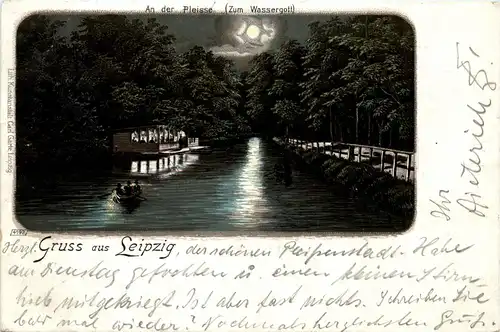 An der Pleisse. (Zum Wassergott)
Lith. Kunstanstalt Carl Garte, Leipzig
Herzl. Gruss aus Leipzig, der schönen Pleißenstadt. Habe
am Dienstag gefochten u. einen kleinen Stirn-
hieb mitgekriegt. Ist aber fast nichts. Schreiben Sie
bald mal wieder? Nochmals herzlichsten Gruß
Ihr Dieterich